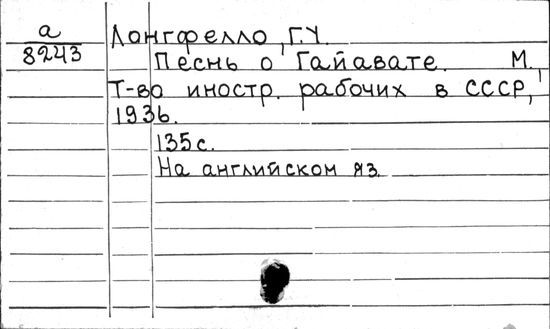 а
8243
Лонгфелло, Г.У.
Песнь о Гайавате. М.,
Т-во иностр. рабочих в СССР,
1936.
135 с.
На английском яз.